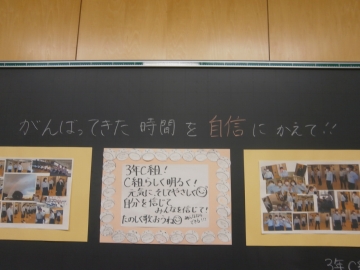 がんばってきた 時間 を 自信 に かえて!!
3年C組!
C組らしく明るく!
元気に そしてやさしく
自分を信じて
みんなを信じて!
たのしく歌おうね
3年C